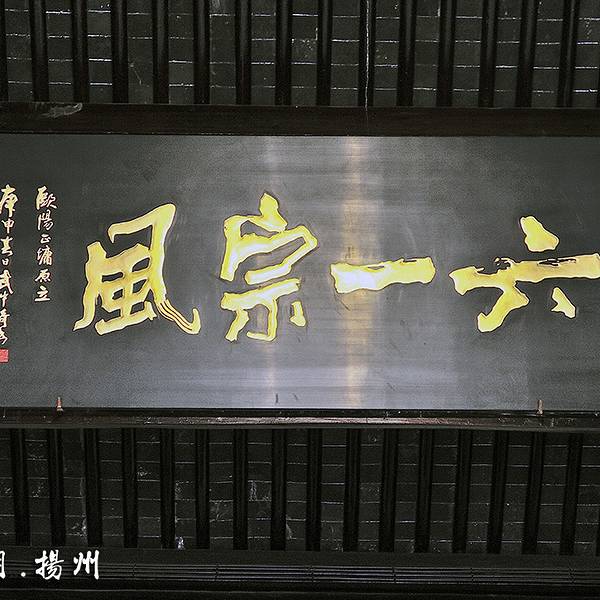 六一宗風
歐陽正墉原立
庚申春日武中奇書
揚州